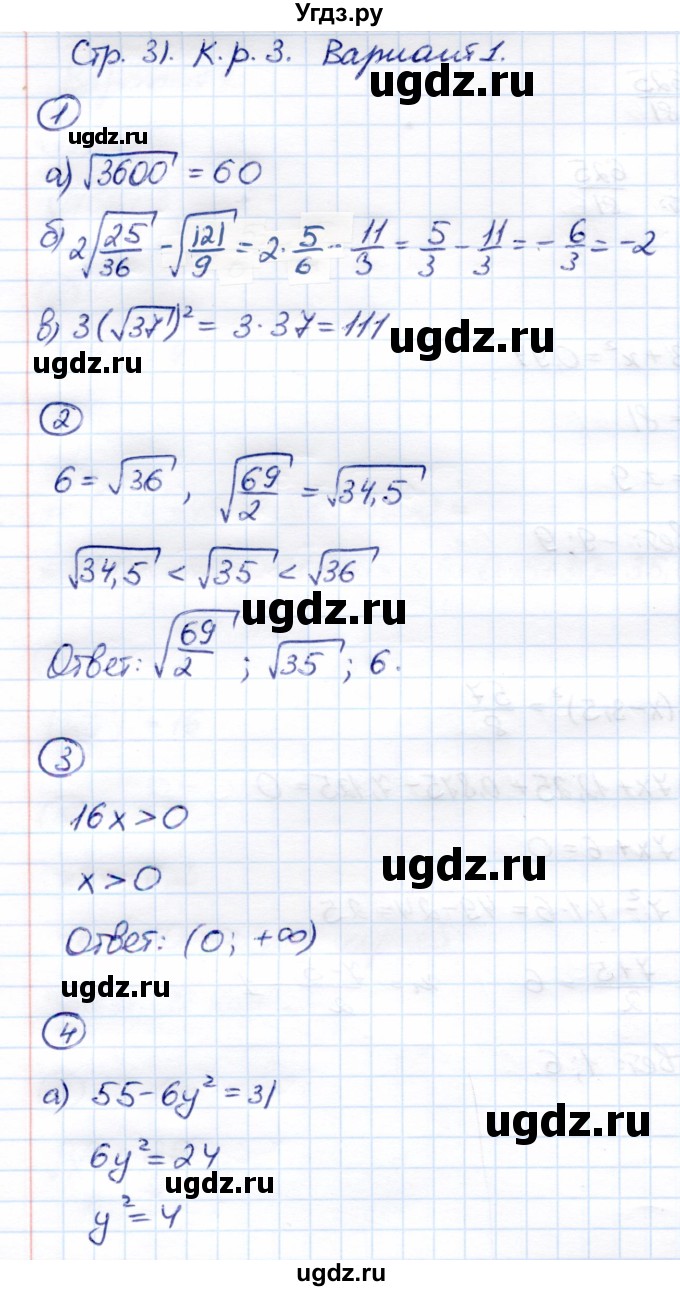 Угдз.ру
Стр. 31. К.р. 3. Вариант 1.
ugdz.ru
1
ugdz.ru
а) √3600 = 60
б) 2√(25/36) - √(121/9) = 2 · 5/6 - 11/3 = 5/3 - 11/3 = - 6/3 = -2
в) 3(√37)² = 3 · 37 = 111
ugdz.ru
ugdz.ru
2
6 = √36 , √(69/2) = √34,5
√34,5 < √35 < √36
ugdz.ru
Ответ: √(69/2) ; √35 ; 6.
3
16x > 0
ugdz.ru
x > 0
Ответ: (0; +∞)
ugdz.ru
4
а) 55 - 6y² = 31
ugdz.ru
6y² = 24
ugdz.ru
y² = 4
ugdz.ru